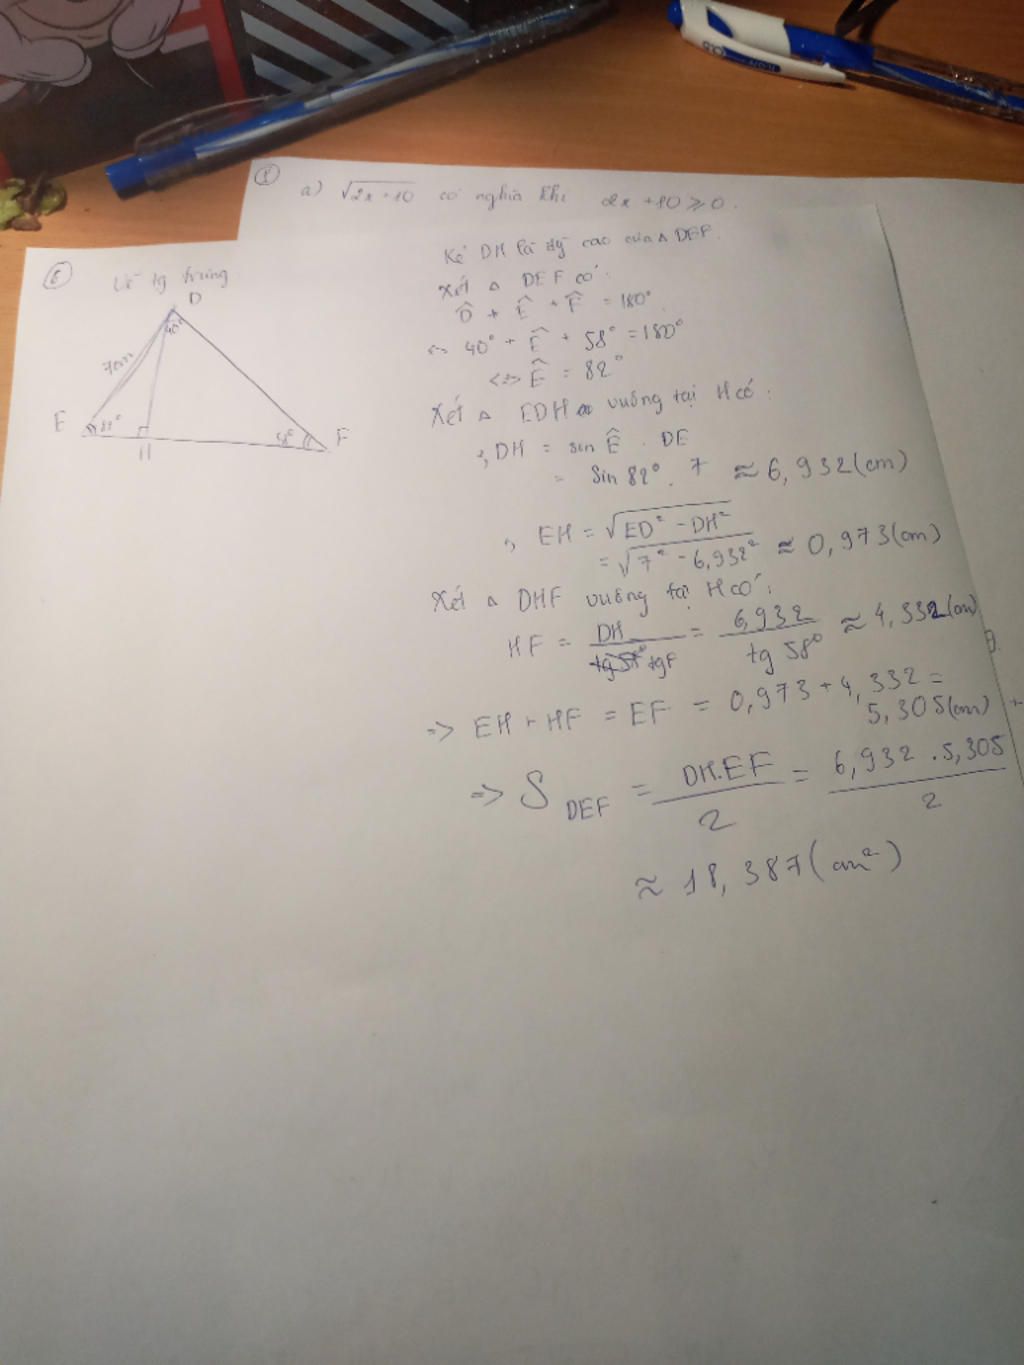 1
a) √2x+10 có nghĩa khi 2x + 10 ⩾ 0.
6
D
40°
7cm
E 82°
H
58° F
Kẻ DH là đg cao của △ DEF.
Xét △ DEF có:
D̂ + Ê + F̂ = 180°
<=> 40° + Ê + 58° = 180°
<=> Ê = 82°
Xét △ EDH vuông tại H có:
DH = sin Ê . DE
= Sin 82° . 7 ≈ 6,932 (cm)
EH = √ED² - DH²
= √7² - 6,932² ≈ 0,973 (cm)
Xét △ DHF vuông tại H có:
HF = DH / tgF = 6,932 / tg 58° ≈ 4,332 (cm)
=> EH + HF = EF = 0,973 + 4,332 =
5,305 (cm)
=> S DEF = DH.EF / 2 = 6,932 . 5,305 / 2
≈ 18,387 (cm²)